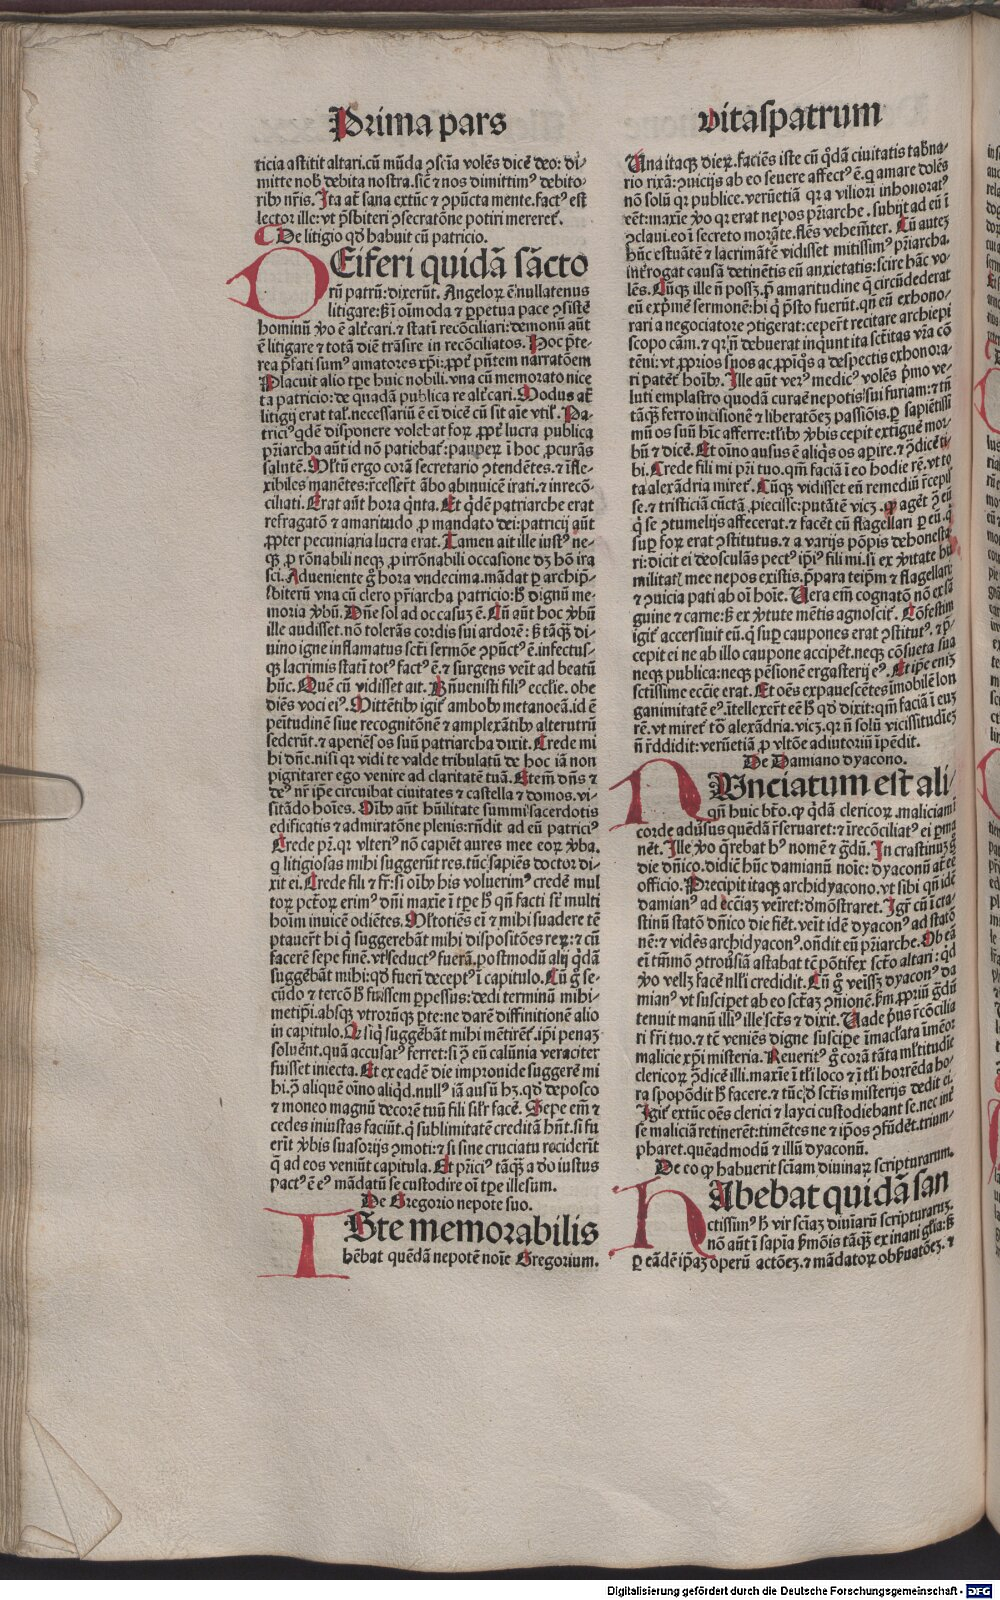 Prima pars
vitaspatrum
ticia astitit altari.cū mūda ↄsciā volēs dicē deo: di⸗
mitte nob̄ debita nostra.sic̄ ⁊ nos dimittimꝰ debito⸗
ribꝰ nr̄is. Ita at̄ sana extūc ⁊ ↄpūcta mente.factꝰ est
lector ille: vt p̄sbiteri ↄsecratōne potiri mereret᷑.
De litigio qd̄ habuit cū patricio.
DEiferi quidā sācto
rū patrū: dixerūt. Angeloꝝ ē nullatenus
litigare: ſꝫ ī oīmoda ⁊ ꝑpetua pace ↄsistē
hominū v̄o ē alēcari. ⁊ statī recōciliari: demonū aūt
ē litigare ⁊ totā diē trāsire in recōciliatos. Hoc p̄te⸗
rea p̄stati sumꝰ amatores xp̄i: ꝓpt̄ pn̄tem narratōem
Placuit alio tꝑe huic nobili. vna cū memorato nice
ta patricio: de quadā publica re alt̄cari. Modus at̄
litigij erat tal̄. necessariū ē eī dicē cū sit aīe vtil̄. Pa⸗
triciꝰ qd̄ē disponere volebat foꝝ ꝓpt̄ lucra publica
p̄riarcha aūt id nō patiebat᷑: pauperꝝ ī hoc ꝓcurās
salutē. Ml̄tū ergo corā secretario ↄtendētes. ⁊ īfle⸗
xibiles manētes: r̄cesser̄t ābo abinuicē irati. ⁊ inrecō⸗
ciliati. Erat aūt hora q̄nta. Et qd̄ē patriarche erat
refragatō ⁊ amaritudo ꝓ mandato dei: patricij aūt
ꝓpter pecuniaria lucra erat. Tamen ait ille iustꝰ ne⸗
qꝫ ꝓ rōnabili neqꝫ ꝓ irrōnabili occasione dꝫ hō ira
sci. Adueniente gͦ hora vndecima. mādat ꝑ archip̄⸗
sbiterū vna cū clero p̄riarcha patricio: h̄ dignū me⸗
moria v̄bū. Dn̄e sol ad occasuꝫ ē. Cū aūt hoc v̄bū
ille audisset. nō tolerās cordis sui ardorē: ſꝫ tāqꝫ di⸗
uino igne inflamatus sct̄i sermōe ↄpūctꝰ ē. infectus⸗
qꝫ lacrimis statī totꝰ factꝰ ē. ⁊ surgens veīt ad beatū
hūc. Quē cū vidisset ait. Bn̄uenisti filiꝰ ecclīe. obe
diēs voci eiꝰ. Mittētibꝰ igit᷑ ambobꝰ metanoeā. id ē
penītudinē siue recognitōnē ⁊ amplexātibꝰ alterutrū
sederūt. ⁊ aperiēs os suū patriarcha dixit. Crede mi
hi dn̄e. nisi qꝛ vidi te valde tribulatū de hoc iā non
pigritarer ego venire ad claritatē tuā. Etem̄ dn̄s ⁊
deꝰ nr̄ ip̄e circuibat ciuitates ⁊ castella ⁊ domos. vi⸗
sitādo hoīes. Oībꝰ aūt hūilitate summi sacerdotis
edificatis ⁊ admiratōne plenis: rn̄dit ad eū patriciꝰ
Crede pr̄. qꝛ vlteriꝰ nō capiēt aures mee eoꝝ v̄ba.
q̄ litigiosas mihi suggerūt res. tūc sapiēs doctor di⸗
xit ei. Crede fili ⁊ fr̄: si oībꝰ his voluerimꝰ credē mul
toꝝ pctōꝝ erimꝰ dn̄i maxīe ī tꝑe h̄ qn̄ facti sr̄ multi
hoīm inuicē odiētes. Ml̄totiēs eī ⁊ mihi suadere tē
ptauer̄t hi q̄ suggerebāt mihi dispositōes reꝝ: ⁊ cū
facerē sepe finē. vt̄ seductꝰ fuerā. postmodū alij qd̄ā
suggēbāt mihi: qd̄ fuerī deceptꝰ ī capitulo. Cū gͦ se⸗
cūdo ⁊ tercōh̄ fuissem ꝑpessus: dedi terminū mihi⸗
metip̄i. absqꝫ vtrorūqꝫ ꝑte: ne darē diffinitionē alio
in capitulo. Q si q̄ suggēbāt mihi mētiret᷑. ip̄i penaꝫ
soluēnt. quā accusatꝰ ferret: si ꝓ eī calūnia veraciter
fuisset iniecta. Et ex eadē die improuide suggerē mi
hi. ꝓ aliquē oīno aliqd̄. nullꝰ iā ausū hꝫ. qd̄ deposco
⁊ moneo magnū decorē tuū fili sil̄r facē. Sepe em̄ ⁊
cedes iniustas faciūt. q̄ sublimitatē creditā hn̄t. si fu
erīt v̄bis suasorijs ↄmoti: ⁊ si sine cruciatu reciderīt
q̄ ad eos veniūt capitula. Et pr̄iciꝰ tāqꝫ a dō iustus
pactꝰ ē eꝰ mādatū se custodire oī tꝑe illesum.
De Gregorio nepote suo.
ISte memorabilis
bēbat quēdā nepotē noīe Gregorium.
Una itaqꝫ dieꝝ. faciēs iste cū qd̄ā ciuitatis tab̄na⸗
rio rixā: ↄuicijs ab eo seuere affectꝰ ē. q̄ amare dolēs
nō solū qꝛ publice. verūetiā qꝛ a viliori inhonoratꝰ
eēt: maxīe v̄o qꝛ erat nepos p̄riarche. subijt ad eū ī
ↄclaui. eo ī secreto morāte. flēs vehemēter. Cū autēꝫ
hūc estuātē ⁊ lacrimātē vidisset mitissimꝰ p̄riarcha.
int̄rogat causā detinētis eū anxietatis: scire hāc vo⸗
lēs. Cūqꝫ ille nō possꝫ. p̄ amaritudine q̄ circūdederat
eū exp̄mē sermonē: hi q̄ p̄sto fuerūt. qn̄ eū exhono⸗
rari a negociatore ↄtigerat: ceper̄t recitare archiepi
scopo cām. ⁊ qꝛ nō debuerat inquūt ita sct̄itas vr̄a cō
tēni: vt ꝓprios suos ac ꝓpiq̄s a despectis exhonora⸗
ri patet᷑ hoībꝰ. Ille aūt verꝰ medicꝰ volēs p̄mo ve⸗
luti emplastro quodā curaē nepotis sui furiam: ⁊ tn̄
tāqꝫ ferro incisionē ⁊ liberatōeꝫ passiōis. ꝑ sapiētissi
mū os suū hīc afferre: tl̄ibꝰ v̄bis cepit extiguē mor⸗
bū ⁊ dicē. Et oīno ausus ē aliq̄s os aꝑire. ⁊ ↄdicē ti⸗
bi. Crede fili mi pr̄i tuo. qm̄ faciā ī eo hodie rē. vt to
ta alexādria miret᷑. Cūqꝫ vidisset eū remediū r̄cepis
se. ⁊ tristiciā cūctā ꝓiecisse: putātē vicꝫ. q̄ aget᷑ ꝓ eū
q̄ se ↄtumelijs affecerat. ⁊ facēt eū flagellari ꝑ eū. q̄
suꝑ foꝝ erat ↄstitutus. ⁊ a varijs pōpis dehonesta⸗
ri: dicit ei deosculās pectꝰ ip̄iꝰ fili mi. si ex v̄itate hū
militatꝭ mee nepos existis. p̄para teip̄m ⁊ flagellari
⁊ ↄuicia pati ab oī hoīe. Vera em̄ cognatō nō ex sā
guine ⁊ carne: ſꝫ ex v̄tute mētis agnoscit᷑. Cōfestim
igit᷑ accersiuit eū. q̄ suꝑ caupones erat ↄstitutꝰ. ⁊ p̄⸗
cepit ei ne ab illo caupone accipet᷑. neqꝫ cōsueta sua
neqꝫ publica: neqꝫ pēsionē ergasterij eꝰ. Et ip̄e eniꝫ
sctīssime ecclīe erat. Et oēs expauescētes īmobilē lon
ganimitatē eꝰ. ītellexer̄t eē h̄ qd̄ dixit: qm̄ faciā ī euꝫ
rē. vt miret᷑ tō alexādria. vicꝫ. qꝛ nō solū vicissitudiēꝫ
nō r̄ddidit: verūetiā ꝓ vltōe adiutoriū īpēdit.
De Damiano dyacono.
NUnciatum est ali⸗
qn̄ huic btō. q̄ qd̄ā clericoꝝ. maliciam ī
corde aduersus quēdā r̄seruaret: ⁊ īrecōciliatꝰ ei ꝑma
nēt. Ille v̄o q̄rebat hꝰ nomē ⁊ gͣdū. In crastinuꝫ gͦ
die dn̄ico. didic̄ hūc damianū noīe: dyaconū at̄ eē
officio. Precipit itaqꝫ archidyacono. vt sibi qn̄ idē
damianꝰ ad ecclīaꝫ veīret: demōstraret. Igr̄ cū ī cra⸗
stinū statō dn̄ico die fiēt. veīt idē dyaconꝰ ad statō
nē: ⁊ vidēs archidyaconꝰ. on̄dit eū p̄riarche. Ob eā
ei tm̄mō ↄtrouīsiā astabat tē pōtifex sctō altari: qd̄
v̄o vellꝫ facē nl̄li credidit. Cū gͦ veīssꝫ dyaconꝰ da
mianꝰ vt suscipet ab eo sct̄aꝫ ↄmōnē. ẜm ꝓpriū gͣdū
tenuit manū illiꝰ ille sct̄s ⁊ dixit. Vade p̄us r̄cōcilia
ri fr̄i tuo. ⁊ tē veniēs digne suscipe īmaclata īmēoꝝ
malicie xp̄i misteria. Reueritꝰ gͦ corā tāta ml̄titudīe
clericoꝝ ↄdicē illi. maxīe ī tl̄i loco ⁊ ī tl̄i horrēda ho⸗
ra spopōdit h̄ facere. ⁊ tūc d̄ sctīs misterijs dedit ei.
Igit᷑ extūc oēs clerici ⁊ layci custodiebant se. nec int̄
se maliciā retinerēt: timētes ne ⁊ ip̄os ↄfūdēt. trium⸗
pharet. quēadmodū ⁊ illū dyaconū.
De eo q̄ habuerit sciam diuinaꝝ scripturarum.
HAbebat quidā san
ctissimꝰ h̄ vir sciaꝫ diuīarū scripturaruꝫ.
nō aūt ī sapīa ẜmōis tāqꝫ ex inani gl̄ia: ſꝫ
ꝑ eādē ip̄aꝫ operū actōeꝫ. ⁊ mādatoꝝ obs̄uatōeꝫ. ⁊
Digitalisierung gefördert durch die Deutsche Forschungsgemeinschaft - DFG